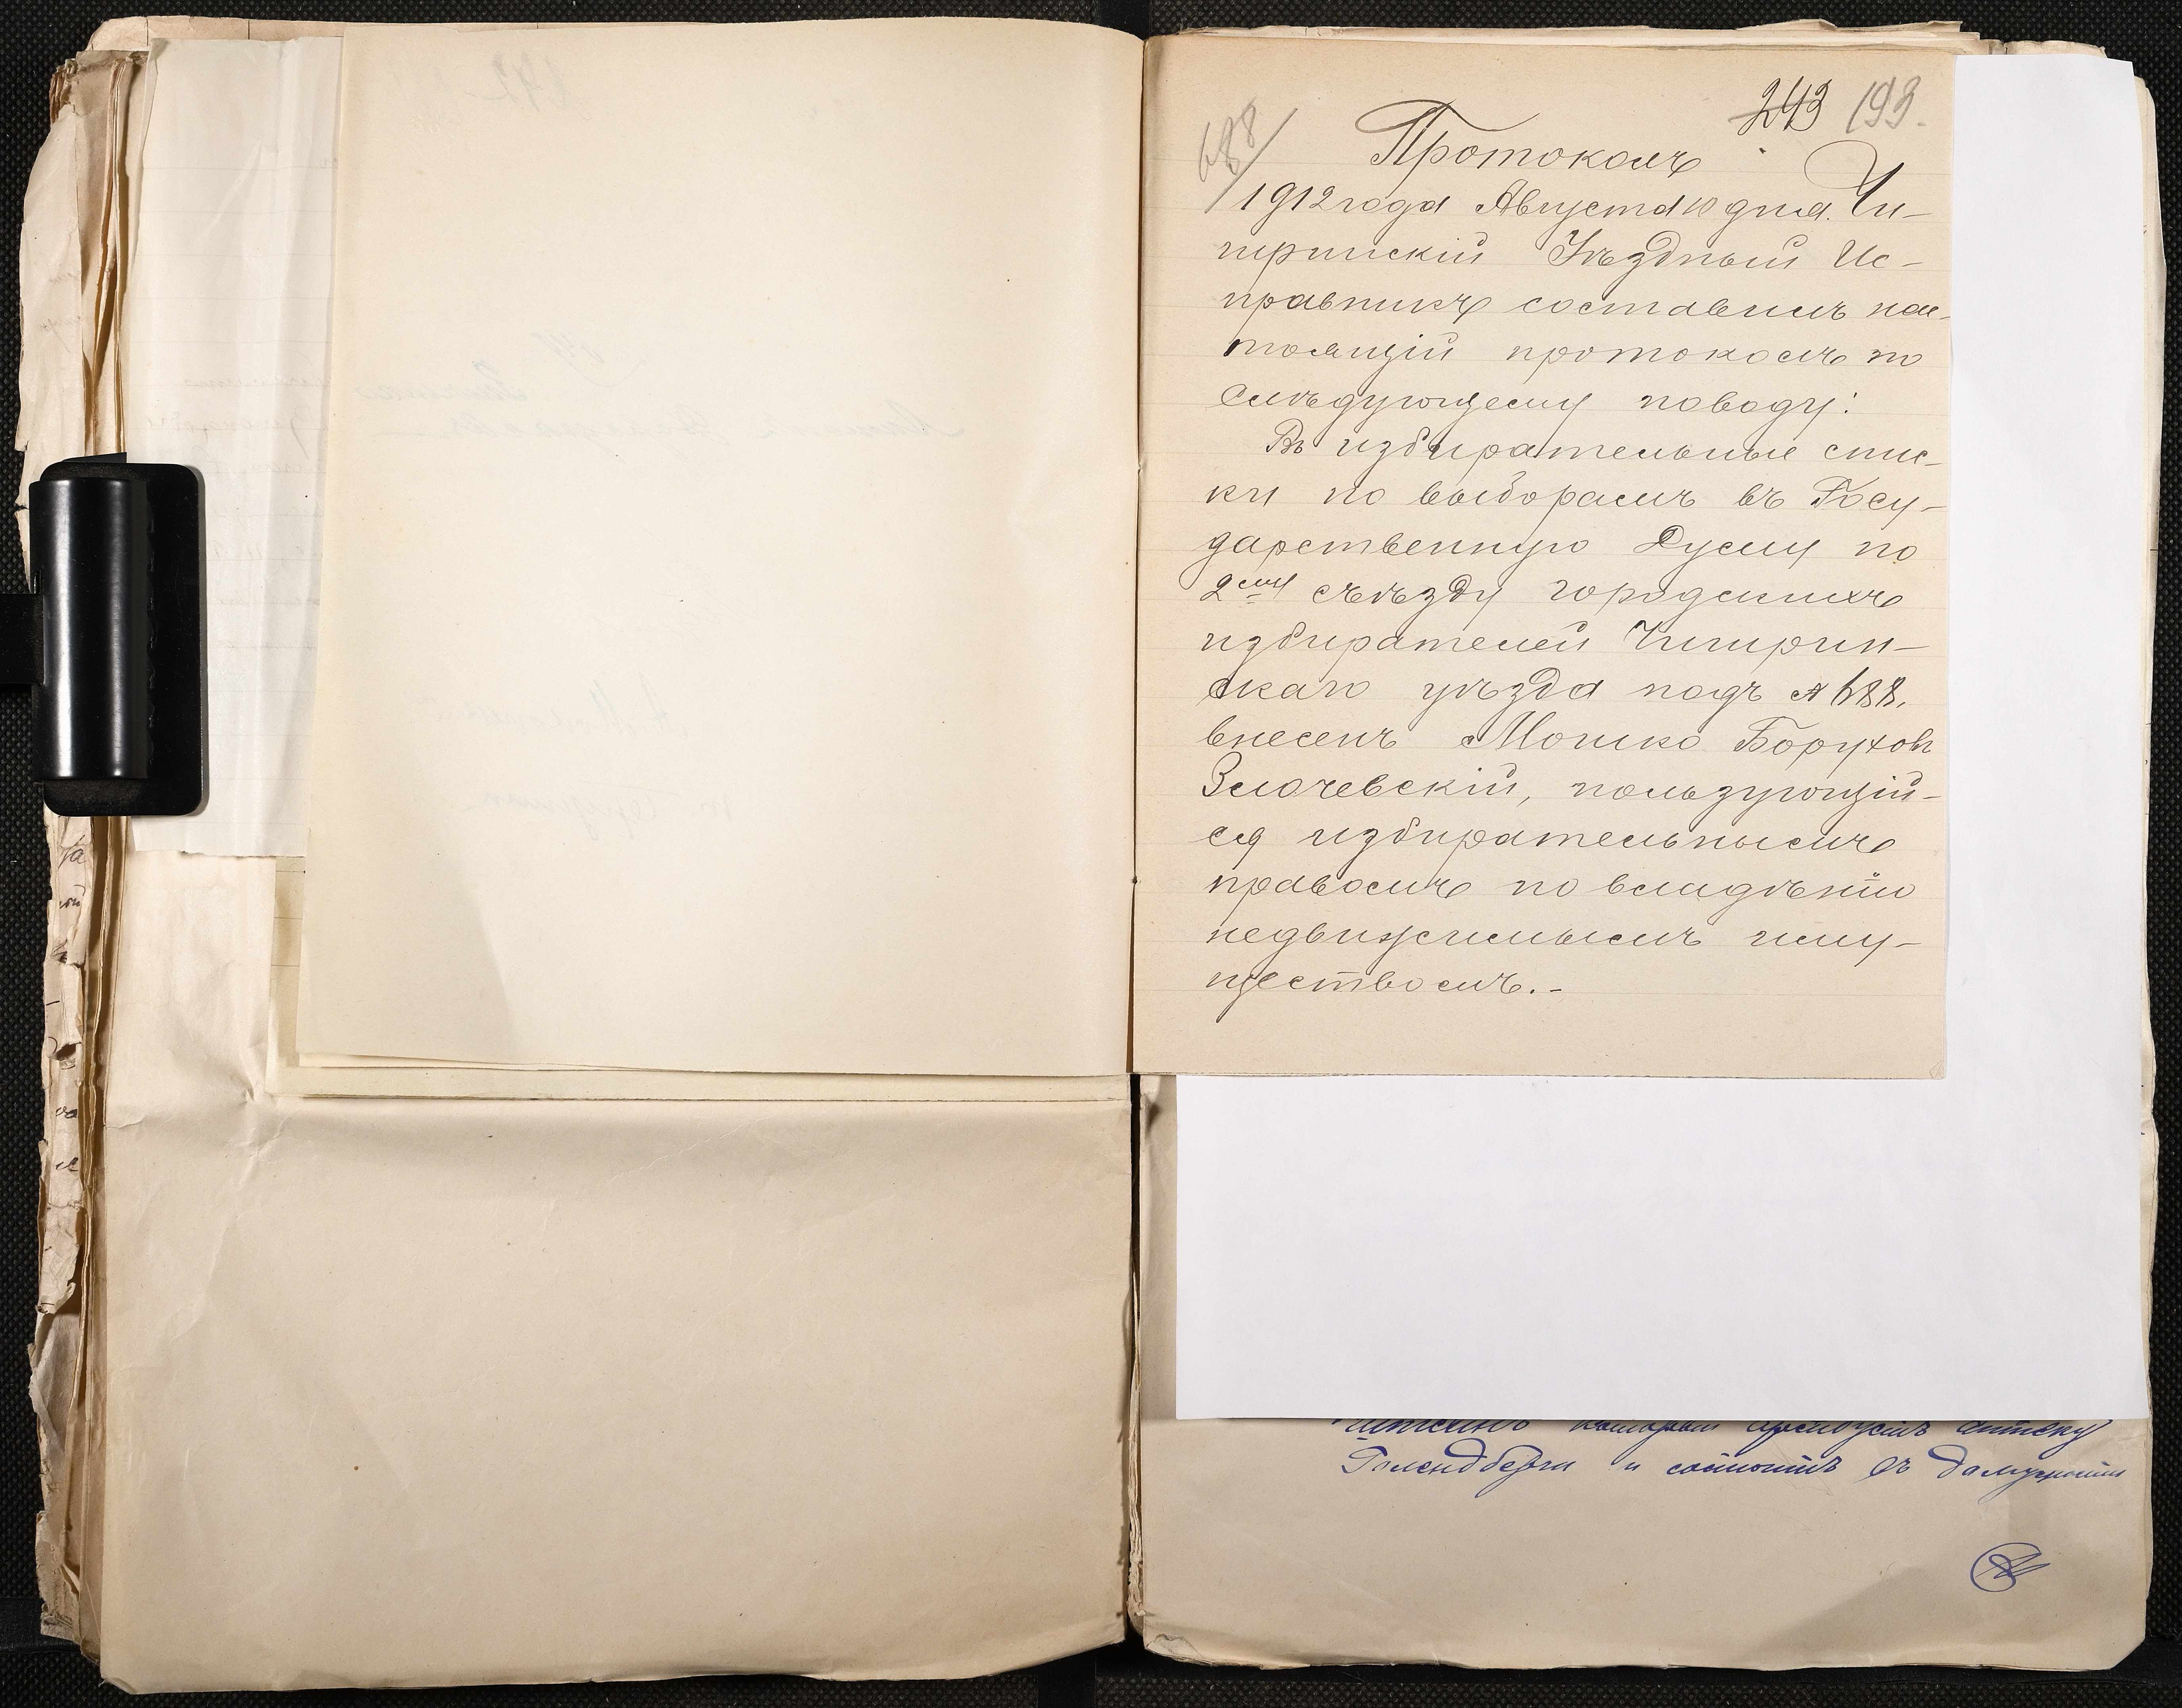 243 193.
688
Протоколъ
1912 года Августа 10 дня. Чи-
гиринскій Уѣздный Ис-
правникъ составилъ нас-
тоящій протоколъ по
слѣдующему поводу:
Въ избирательные спис-
ки по выборамъ въ Госу-
дарственную Думу по
2му съѣзду городскихъ
избирателей Чигирин-
скаго уѣзда подъ № 688,
внесенъ Мошко Боруховъ
Злочевскій, пользующій-
ся избирательнымъ
правомъ по владѣнію
недвижимымъ иму-
ществомъ.-
который арендуетъ аптеку
и состоитъ въ